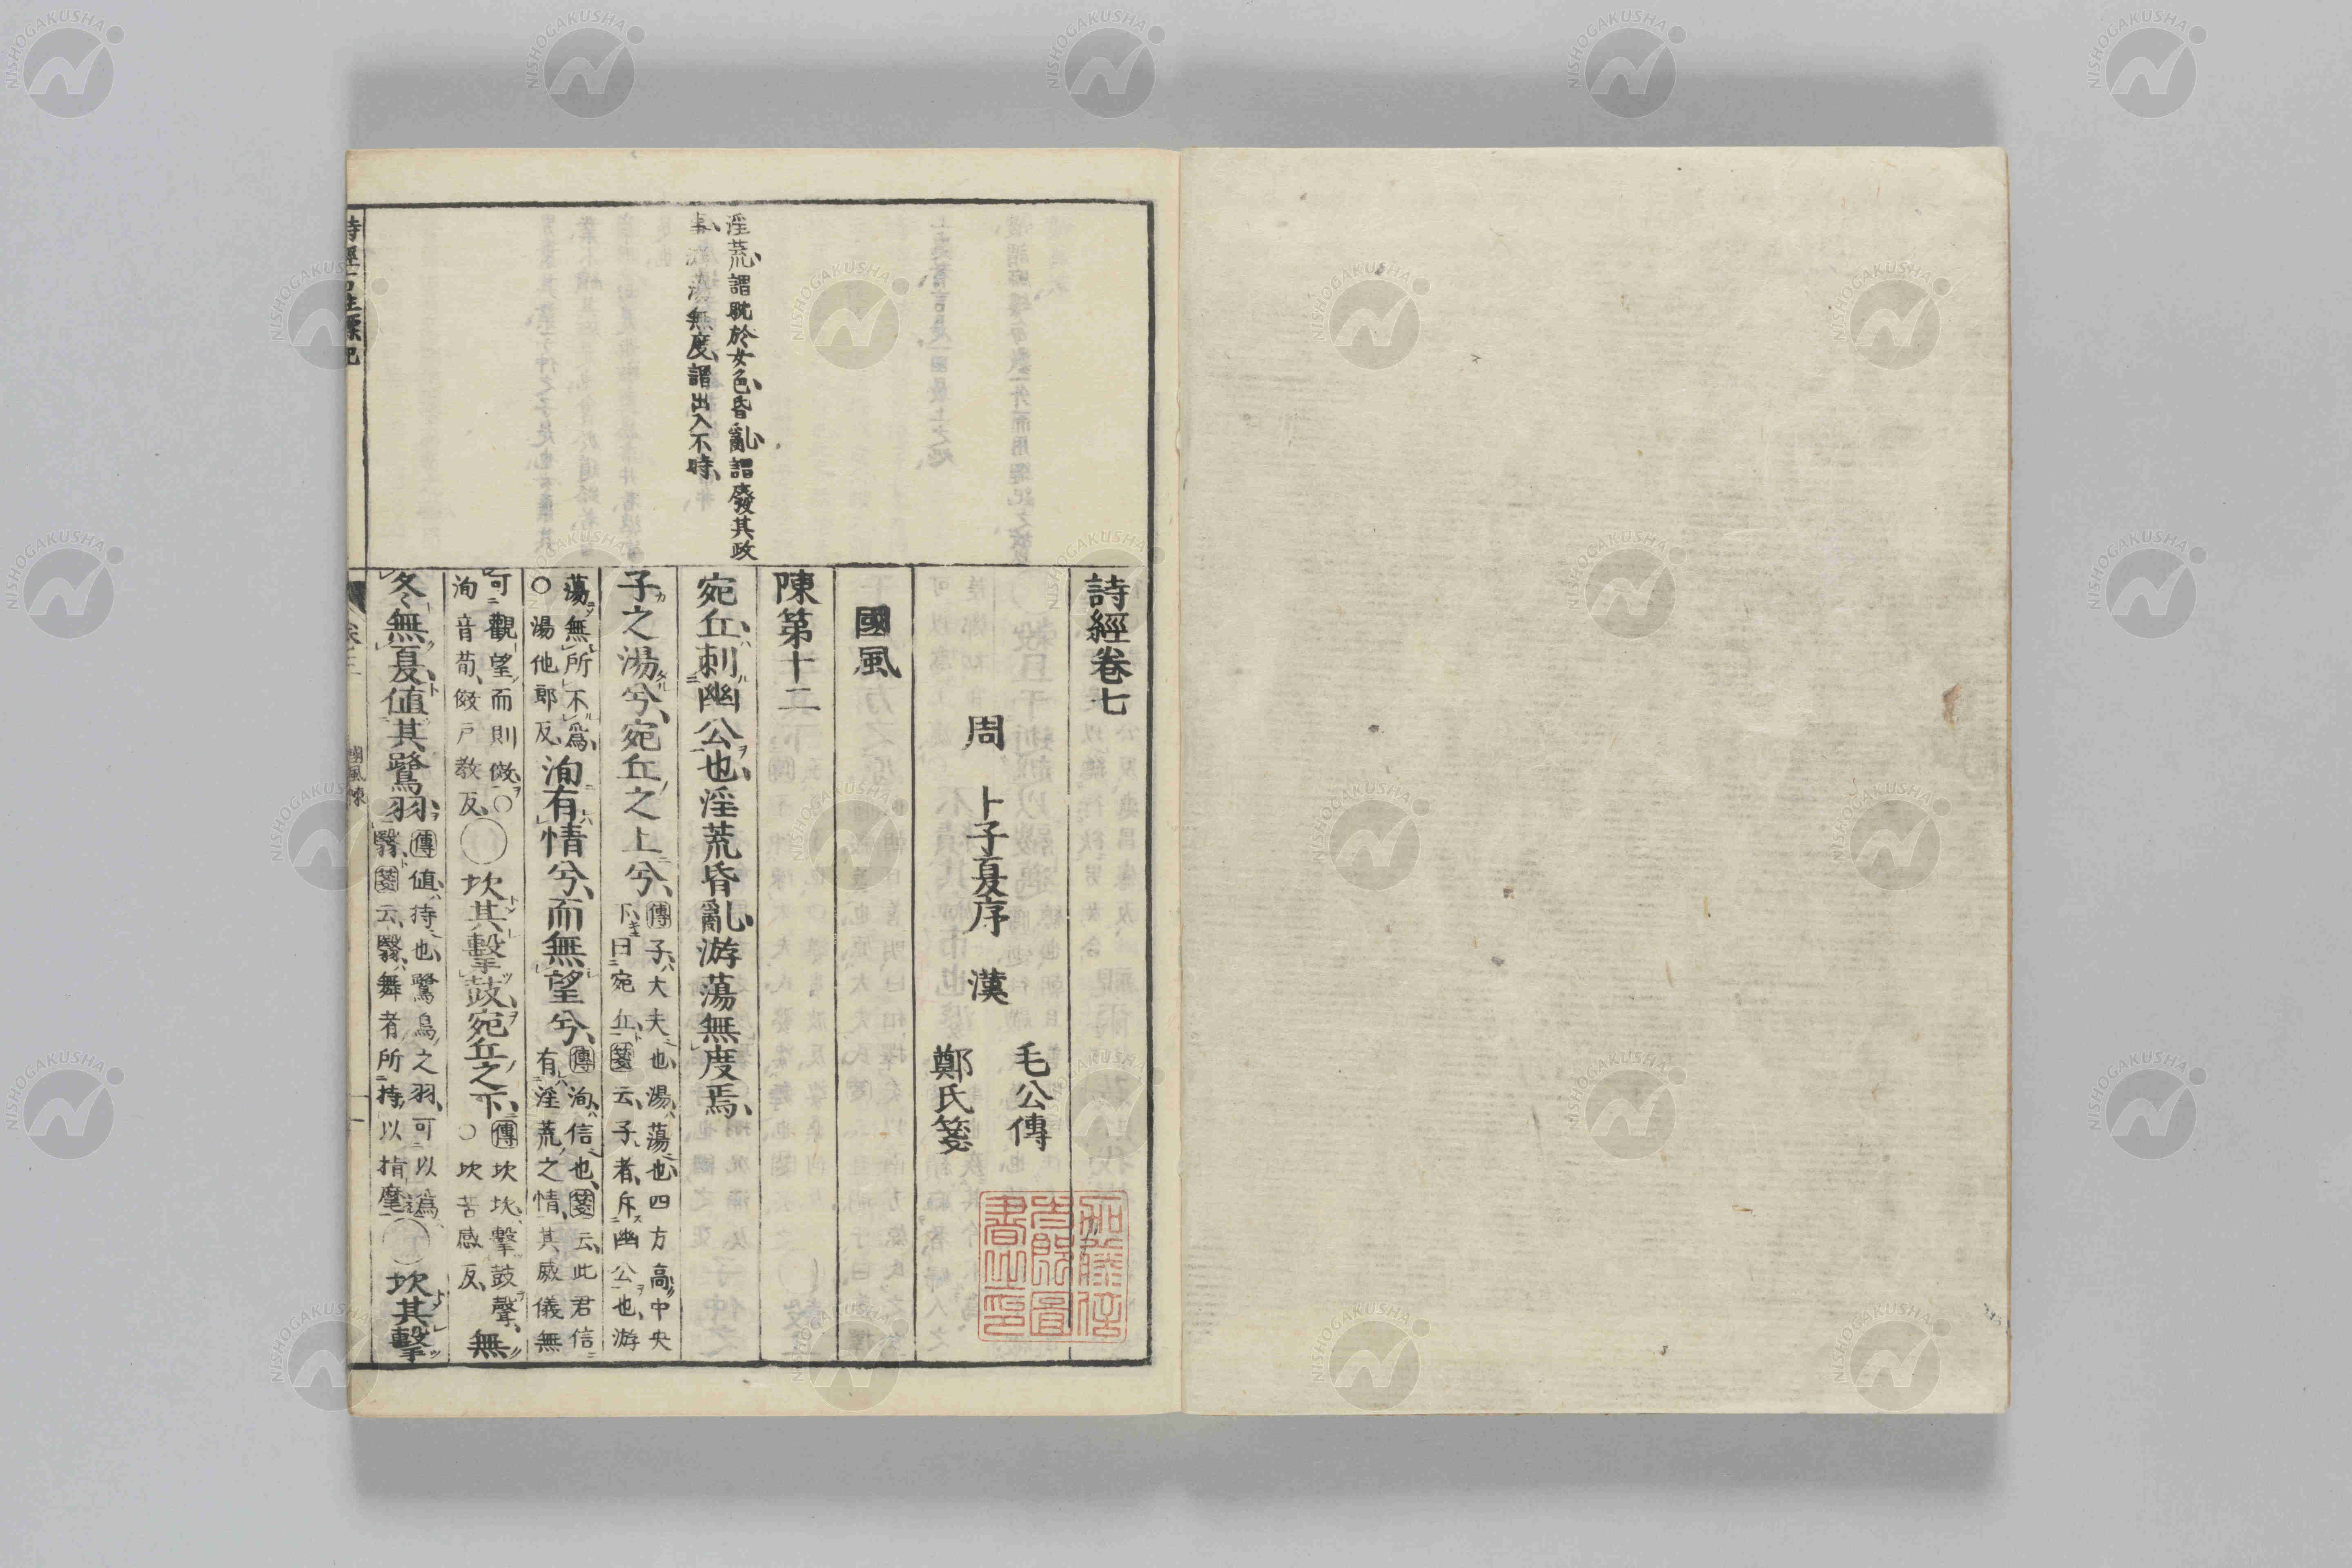 詩經卷七
周 卜子夏序 漢 毛公傳
鄭氏箋
國風
陳第十二
淫荒、謂耽於女色、昏亂、謂廢其政
無度、謂出入不時、
宛丘、刺幽公也、淫荒昏亂、游蕩無度焉、
子之湯兮、宛丘之上兮、
傳子、大夫也、湯、蕩也、四方高中央
下、曰宛丘、箋云、子者、斥幽公也、游
蕩無所不爲、
○湯他郎反、
洵有情兮、而無望兮、
傳洵、信也、箋云、此君信
有淫荒之情、其威儀無
可觀望而則傚、○
洵音荀、傚戸教反、
○坎其擊鼓、宛丘之下、
傳坎坎、擊鼓聲、
○坎苦感反、
無
冬無夏、値其鷺羽、
傳値、持也、鷺鳥之羽、可以爲
翳、箋云、翳、舞者所持、以指麾
○坎其擊
國風陳
NISHOGAKUSHA